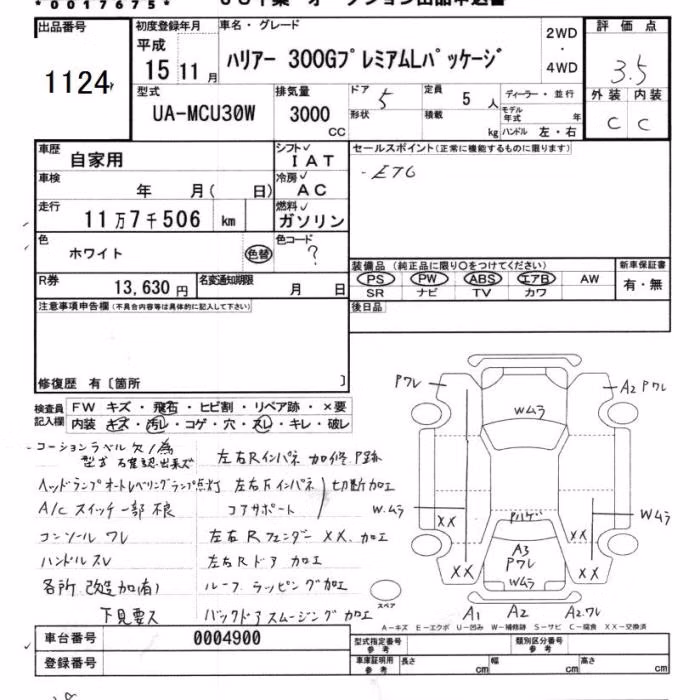 *0017675*
出品番号 初度登録年月 車名・グレード 2WD・4WD 評価点
1124 平成 15 11月 ハリアー 300GプレミアムLパッケージ 3.5
型式 排気量 ドア 5 定員 5人 ディーラー・並行 外装 内装
UA-MCU30W 3000cc 形状 積載 kg モデル年式 年 ハンドル 左・右 C C
車歴 自家用 シフト IAT セールスポイント(正常に機能するものに限ります)
車検 年 月( 日) 冷房 AC ・ETC
走行 11万7千506 km 燃料 ガソリン
色 ホワイト 色替 色コード ?
装備品(純正品に限り○をつけてください) 新車保証書
R券 13,630円 名変通知期限 月 日 PS PW ABS エアB AW 有・無
SR ナビ TV カワ
注意事項申告欄(不具合内容等は具体的に記入して下さい) 後日品
修復歴 有〔箇所 〕
検査員記入欄 FW キズ・飛石・ヒビ割・リペア跡・×要
内装 キズ・汚レ・コゲ・穴・スレ・キレ・破レ
コーションラベル欠ノ為
型式 確認出来ズ 左右Rインパネ 加修 P跡
ヘッドランプオートレベリングランプ点灯 左右Fインパネ 切断加工
A/C スイッチ一部不良 コアサポート
コンソール ワレ 左右Rフェンダー XX、加工
ハンドル スレ 左右Rドア 加工
各所 改造加工(有) ルーフ ラッピング加工
下見要ス バックドア スムージング加工
Pワレ A2 Pワレ
Wムラ
W.ムラ XX Pハゲ XX Wムラ
A3
Pワレ
XX Wムラ XX
スペア A1 A2 A2.ワレ
A－キズ E－エクボ U－凹み W－補修跡 S－サビ C－腐食 XX－交換済
車台番号 0004900 型式指定番号 参考 類別区分番号 参考
登録番号 車庫証明用 参考 長さ cm 幅 cm 高さ cm